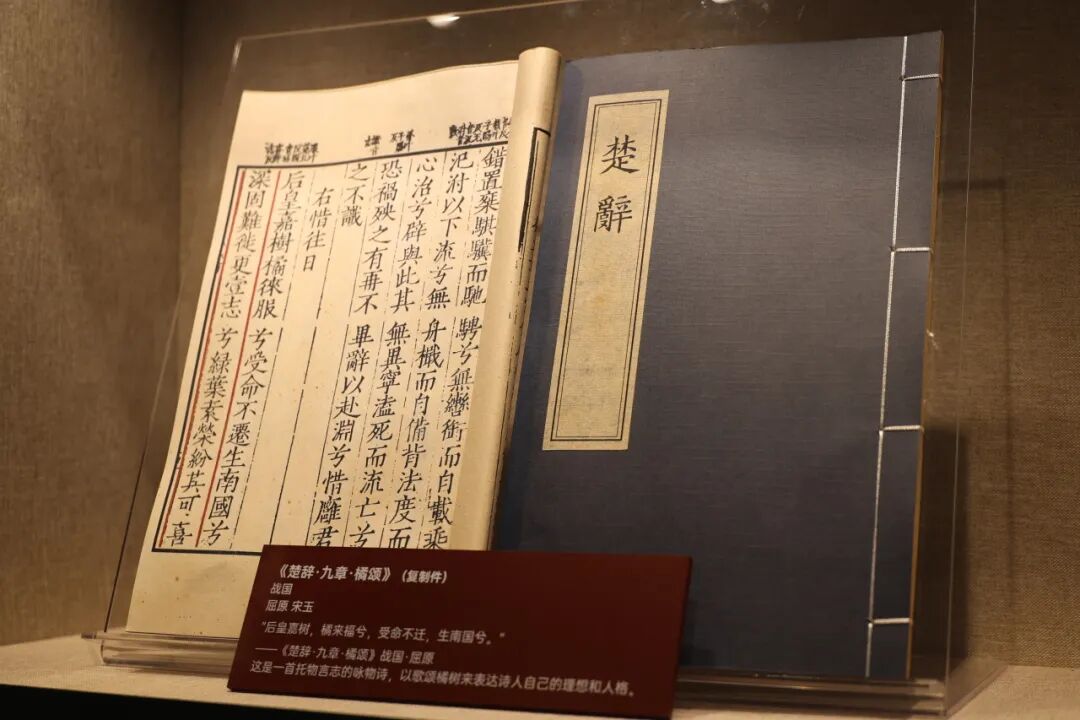 錯置棄騏驥而馳騁兮無轡銜而自載乘
氾泭以下流兮無舟檝而自備背法度而
心治兮辟與此其無異寧溘死而流亡兮
恐禍殃之有再不畢辭以赴淵兮惜廱君
之不識
右惜往日
后皇嘉樹橘徠服兮受命不遷生南國兮
深固難徙更壹志兮緑葉素榮紛其可喜
楚辭
《楚辞·九章·橘颂》（复制件）
战国
屈原 宋玉
“后皇嘉树，橘来福兮，受命不迁，生南国兮。”
——《楚辞·九章·橘颂》战国·屈原
这是一首托物言志的咏物诗，以歌颂橘树来表达诗人自己的理想和人格。